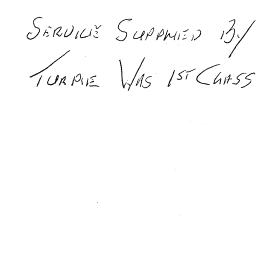 SERVICE SUPPLIED BY
TURPIE WAS 1ST CLASS